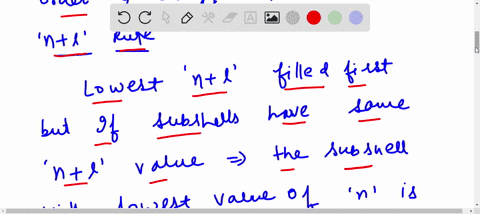 'n+l' Rule
Lowest 'n+l' filled first
but If subshells have same
'n+l' value ⇒ the subshell
lowest value of 'n' is